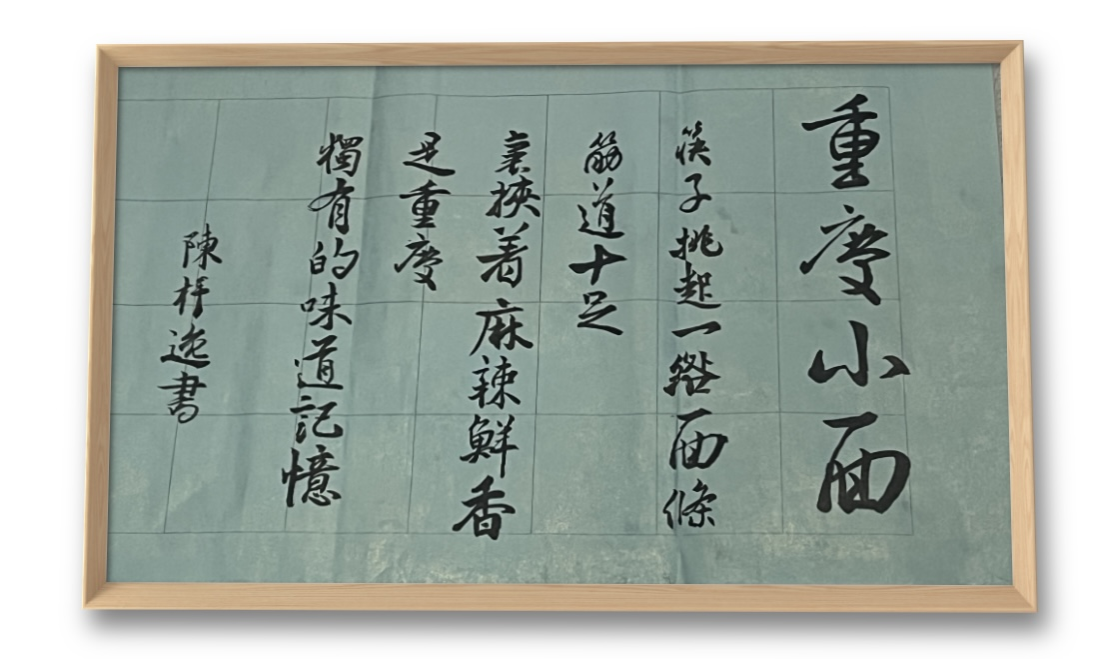 重慶小面
筷子挑起一綹面條
筋道十足
裹挾着麻辣鮮香
是重慶
獨有的味道記憶
陳逸書